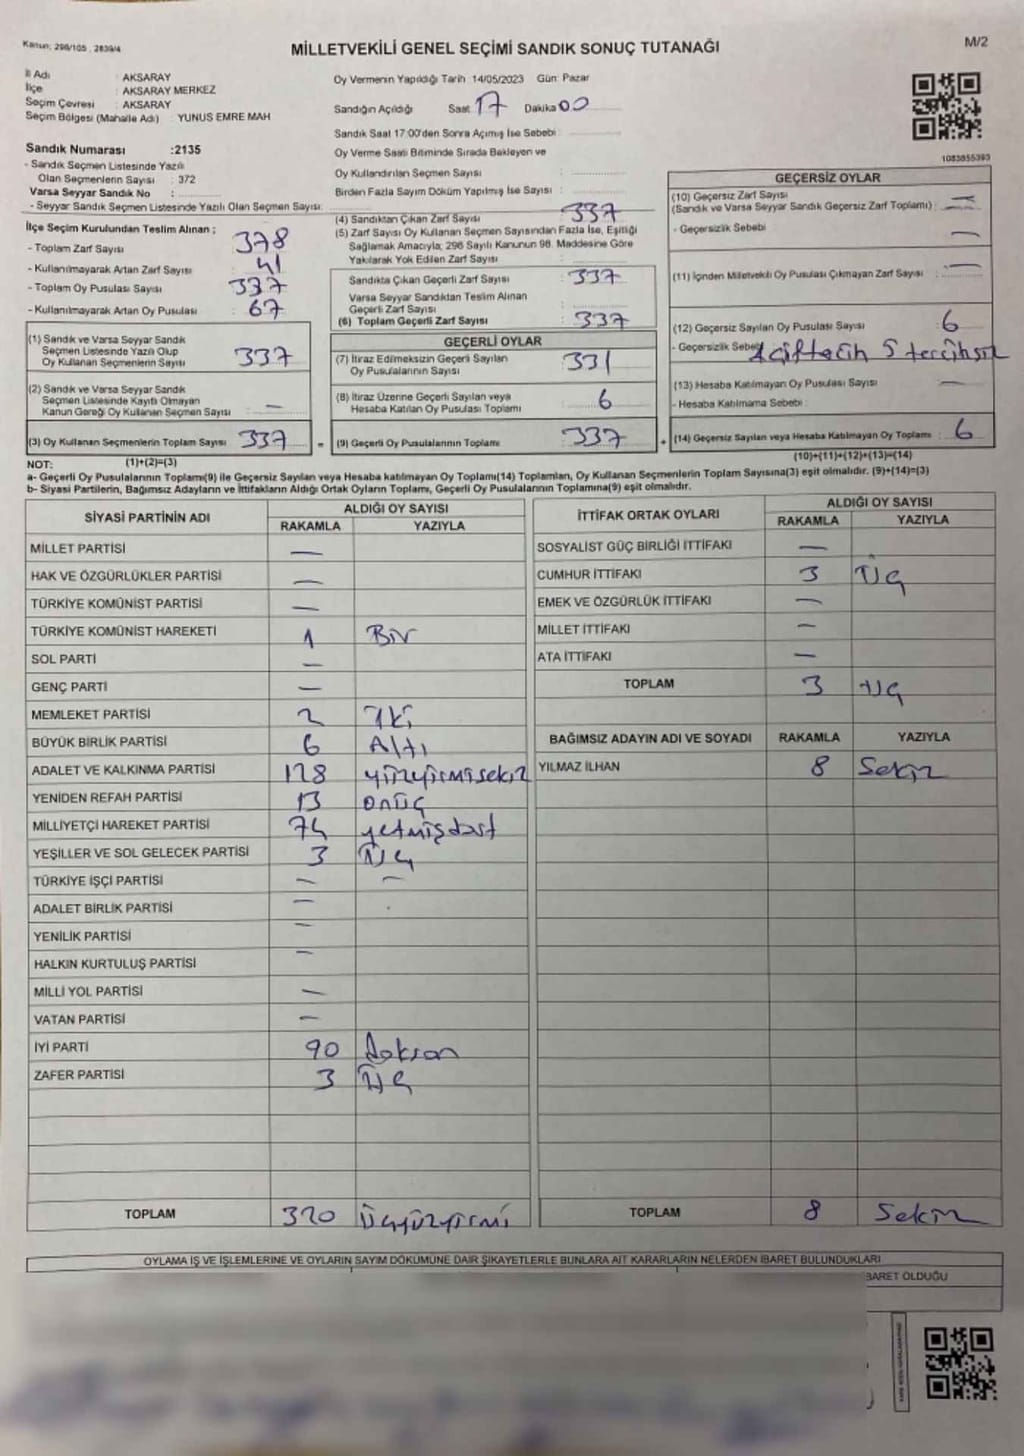 Kanun: 298/105 , 2839/4
MİLLETVEKİLİ GENEL SEÇİMİ SANDIK SONUÇ TUTANAĞI
M/2
İl Adı : AKSARAY
İlçe : AKSARAY MERKEZ
Seçim Çevresi : AKSARAY
Seçim Bölgesi (Mahalle Adı) : YUNUS EMRE MAH
Sandık Numarası :2135
- Sandık Seçmen Listesinde Yazılı
Olan Seçmenlerin Sayısı : 372
Varsa Seyyar Sandık No :
- Seyyar Sandık Seçmen Listesinde Yazılı Olan Seçmen Sayısı:
Oy Vermenin Yapıldığı Tarih 14/05/2023 Gün: Pazar
Sandığın Açıldığı Saat 17 Dakika 00
Sandık Saat 17:00'den Sonra Açımış İse Sebebi :
Oy Verme Saati Bitiminde Sırada Bekleyen ve
Oy Kullandırılan Seçmen Sayısı :
Birden Fazla Sayım Döküm Yapılmış İse Sayısı :
1083855393
İlçe Seçim Kurulundan Teslim Alınan ;
- Toplam Zarf Sayısı : 378
- Kullanılmayarak Artan Zarf Sayısı : 41
- Toplam Oy Pusulası Sayısı : 337
- Kullanılmayarak Artan Oy Pusulası : 67
(1) Sandık ve Varsa Seyyar Sandık
Seçmen Listesinde Yazılı Olup
Oy Kullanan Seçmenlerin Sayısı : 337
(2) Sandık ve Varsa Seyyar Sandık
Seçmen Listesinde Kayıtlı Olmayan
Kanun Gereği Oy Kullanan Seçmen Sayısı : —
(3) Oy Kullanan Seçmenlerin Toplam Sayısı : 337
(4) Sandıktan Çıkan Zarf Sayısı : 337
(5) Zarf Sayısı Oy Kullanan Seçmen Sayısından Fazla İse, Eşitliği
Sağlamak Amacıyla; 298 Sayılı Kanunun 98. Maddesine Göre
Yakılarak Yok Edilen Zarf Sayısı :
Sandıkta Çıkan Geçerli Zarf Sayısı : 337
Varsa Seyyar Sandıktan Teslim Alınan
Geçerli Zarf Sayısı :
(6) Toplam Geçerli Zarf Sayısı : 337
GEÇERLİ OYLAR
(7) İtiraz Edilmeksizin Geçerli Sayılan
Oy Pusulalarının Sayısı : 331
(8) İtiraz Üzerine Geçerli Sayılan veya
Hesaba Katılan Oy Pusulası Toplamı : 6
= (9) Geçerli Oy Pusulalarının Toplamı : 337
GEÇERSİZ OYLAR
(10) Geçersiz Zarf Sayısı
(Sandık ve Varsa Seyyar Sandık Geçersiz Zarf Toplamı) : —
- Geçersizlik Sebebi : —
(11) İçinden Milletvekili Oy Pusulası Çıkmayan Zarf Sayısı : —
(12) Geçersiz Sayılan Oy Pusulası Sayısı : 6
- Geçersizlik Sebebi 1 çift tercih 5 tercihsiz
(13) Hesaba Katılmayan Oy Pusulası Sayısı : —
- Hesaba Katılmama Sebebi :
+ (14) Geçersiz Sayılan veya Hesaba Katılmayan Oy Toplamı : 6
NOT: (1)+(2)=(3)
(10)+(11)+(12)+(13)=(14)
a- Geçerli Oy Pusulalarının Toplamı(9) ile Geçersiz Sayılan veya Hesaba katılmayan Oy Toplamı(14) Toplamları, Oy Kullanan Seçmenlerin Toplam Sayısına(3) eşit olmalıdır. (9)+(14)=(3)
b- Siyasi Partilerin, Bağımsız Adayların ve İttifakların Aldığı Ortak Oyların Toplamı, Geçerli Oy Pusulalarının Toplamına(9) eşit olmalıdır.
SİYASİ PARTİNİN ADI ALDIĞI OY SAYISI
RAKAMLA YAZIYLA
MİLLET PARTİSİ —
HAK VE ÖZGÜRLÜKLER PARTİSİ —
TÜRKİYE KOMÜNİST PARTİSİ —
TÜRKİYE KOMÜNİST HAREKETİ 1 Bir
SOL PARTİ —
GENÇ PARTİ —
MEMLEKET PARTİSİ 2 İki
BÜYÜK BİRLİK PARTİSİ 6 Altı
ADALET VE KALKINMA PARTİSİ 128 yüzyirmisekiz
YENİDEN REFAH PARTİSİ 13 onüç
MİLLİYETÇİ HAREKET PARTİSİ 74 yetmişdört
YEŞİLLER VE SOL GELECEK PARTİSİ 3 Üç
TÜRKİYE İŞÇİ PARTİSİ — —
ADALET BİRLİK PARTİSİ —
YENİLİK PARTİSİ —
HALKIN KURTULUŞ PARTİSİ —
MİLLİ YOL PARTİSİ —
VATAN PARTİSİ —
İYİ PARTİ 90 doksan
ZAFER PARTİSİ 3 Üç
TOPLAM 320 üçyüzyirmi
İTTİFAK ORTAK OYLARI ALDIĞI OY SAYISI
RAKAMLA YAZIYLA
SOSYALİST GÜÇ BİRLİĞİ İTTİFAKI —
CUMHUR İTTİFAKI 3 Üç
EMEK VE ÖZGÜRLÜK İTTİFAKI —
MİLLET İTTİFAKI —
ATA İTTİFAKI —
TOPLAM 3 Üç
BAĞIMSIZ ADAYIN ADI VE SOYADI RAKAMLA YAZIYLA
YILMAZ İLHAN 8 Sekiz
TOPLAM 8 Sekiz
OYLAMA İŞ VE İŞLEMLERİNE VE OYLARIN SAYIM DÖKÜMÜNE DAİR ŞİKAYETLERLE BUNLARA AİT KARARLARIN NELERDEN İBARET BULUNDUKLARI
BARET OLDUĞU